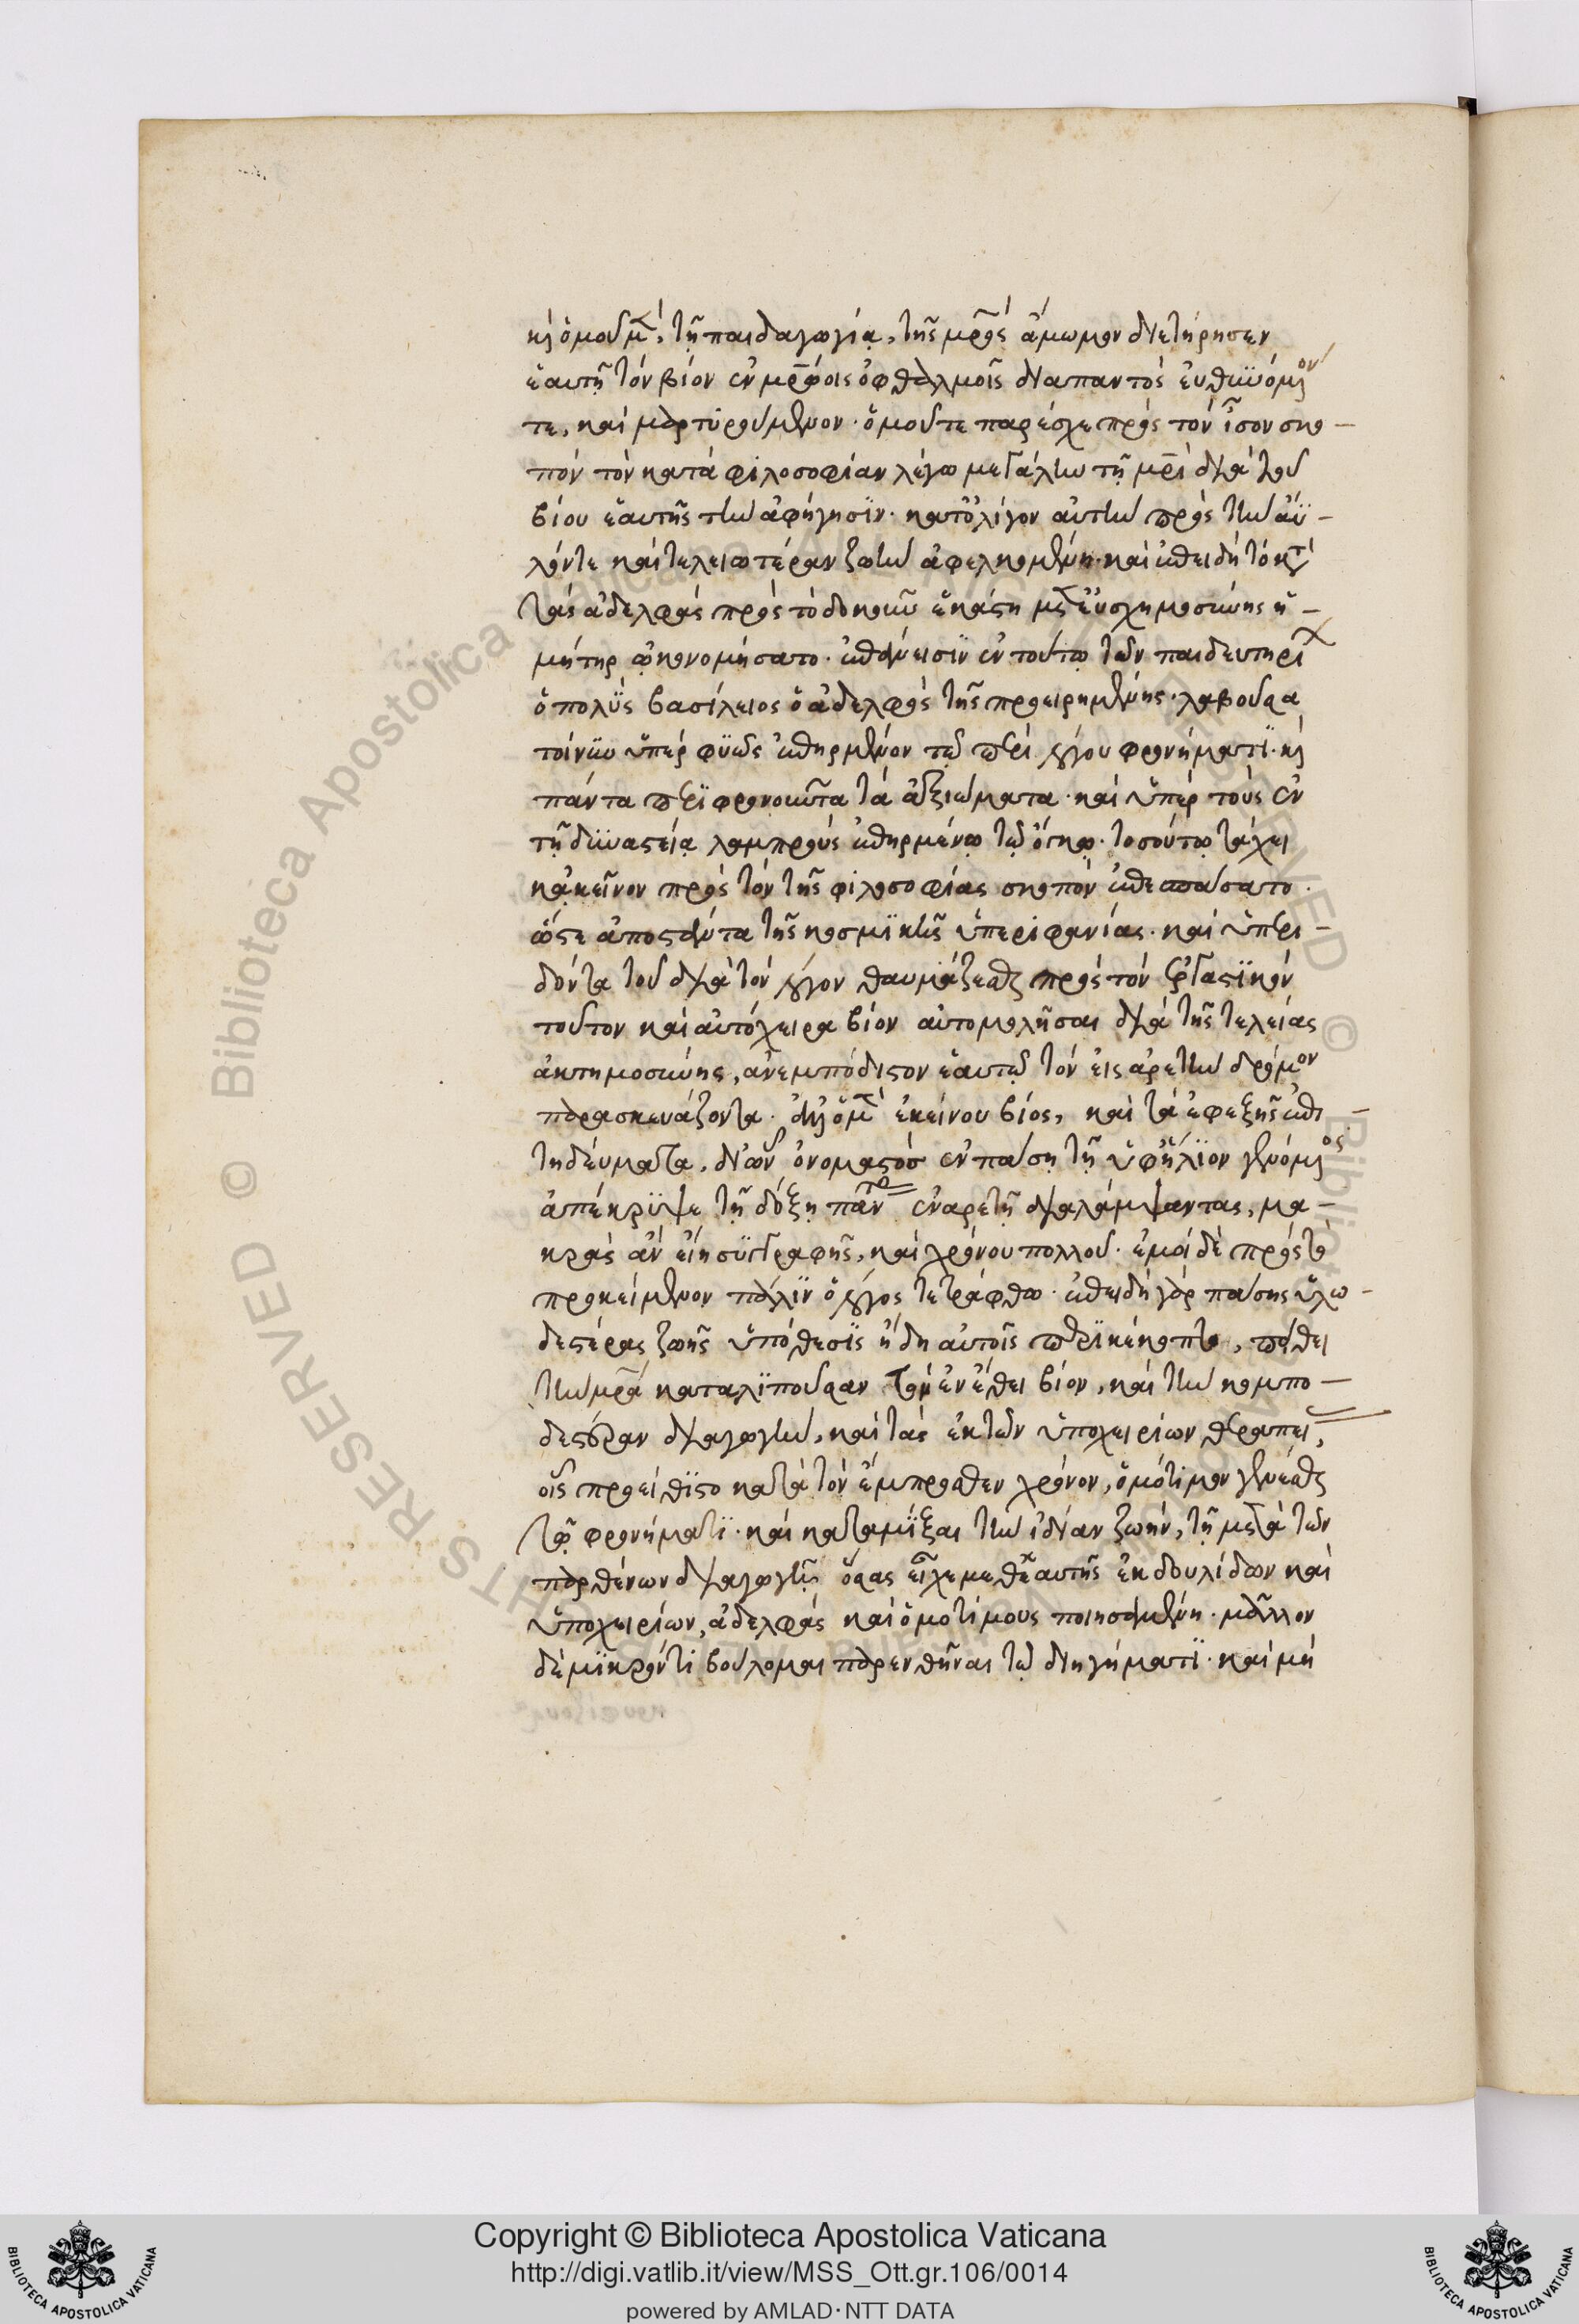 κὶ ὁμοῦ μ̅, τῆ παιδαγωγία, τῆς μρ̅ὸς ἄμωμον διετήρησεν
ἑαυτῆ τὸν βίον ἐν μρ̅ώοις ὀφθαλμοῖς διαπαντὸς ἐυθυνόμενον
τε, καὶ μαρτυρούμενον· ὁμοῦ τε παρέσχε πρὸς τὸν ἴσον σκο-
πὸν τὸν κατὰ φιλοσοφίαν λέγω μεγάλην τῆ μρ̅ὶ διὰ τοῦ
βίου ἑαυτῆς τὴν ἀφήγησϊν· κατ' ὀλίγον αὐτὴν πρὸς τὴν ἄϋ-
λόντε καὶ τελειωτέραν ζωὴν ἀφελκομένη· καὶ ἐπειδὴ τὸ κτ̅
τὰς ἀδελφὰς πρὸς τὸ δοκοῦν ἑκάστη μετ' ἐυσχημοσύνης ἡ-
μήτηρ ὠκονομήσατο· ἐπάνεισϊν ἐν τούτω τῶν παιδευτηρί
ὁ πολῢς βασίλειος ὁ ἀδελφὸς τῆς προειρημένης· λαβοῦσα
τοίνϋν ὑπὲρ φϋῶς ἐπηρμένον τῶ περὶ λόγου φρονήματϊ· κὶ
πάντα περϊφρονοῦντα τὰ ἀξιώματα· καὶ ὑπὲρ τοὺς ἐν
τῆ δϋναστεία λαμπροὺς ἐπηρμένω τῶ ὄγκω· τοσούτω τάχει
κἀκεῖνον πρὸς τὸν τῆς φιλοσοφίας σκοπὸν ἐπεσπάσατο·
ὥστε ἀποστάντα τῆς κοσμϊκῆς ὑπεριφανίας· καὶ ὑπερι-
δόντα τοῦ διὰ τὸν λόγον θαυμάζεσθαι πρὸς τὸν ἐργαστϊκὸν
τοῦτον καὶ αὐτόχειρα βίον αὐτομολῆσαι διὰ τῆς τελείας
ἀκτημοσύνης, ἀνεμπόδιστον ἑαυτῶ τὸν ἐις ἀρετὴν δρόμον
παρασκευάζοντα· ἀλλ' ὁ μ̅ ἐκείνου βίος, καὶ τὰ ἐφεξῆς ἐπι-
τηδέυματα, δι' ὧν ὀνομαστὸσ ἐν πάση τῆ ὑφ' ἥλϊον γενόμενος
ἀπέκρϋψε τῆ δόξη πάντ ἐν ἀρετῆ διαλάμψαντας, μα-
κρᾶς ἂν εἴη σϋγγραφῆς, καὶ χρόνου πολλοῦ· ἐμοὶ δὲ πρὸς τὸ
προκείμενον πάλϊν ὁ λόγος τετράφθω· ἐπειδὴ γὰρ πάσης ὑλω-
δεστέρας ζωῆς ὑπόθεσϊς ἤδη αὐτοῖς περϊκέκοπτο, πείθει
τὴν μρ̅α καταλϊποῦσαν τὸν ἐν ἔθει βίον, καὶ τὴν κομπο-
δεστέραν διαγωγὴν, καὶ τὰς ἐκ τῶν ὑποχειρίων θεραπεί,
οἷς προείθϊστο κατὰ τὸν ἔμπροσθεν χρόνον, ὁμότιμον γενέσθαι
τῶ φρονήματϊ· καὶ καταμΐξαι τὴν ἰδίαν ζωὴν, τῆ μετὰ τῶν
παρθένων διαγωγῆ ὅσας εἶχε μεθ' ἑαυτῆς ἐκ δουλίδων καὶ
ὑποχειρίων, ἀδελφὰς καὶ ὁμοτίμους ποιησάμένη· μᾶλλον
δὲ μϊκρόντι βούλομαι παρενθῆναι τῶ διηγήματϊ· καὶ μὴ
Copyright © Biblioteca Apostolica Vaticana
http://digi.vatlib.it/view/MSS_Ott.gr.106/0014
powered by AMLAD·NTT DATA